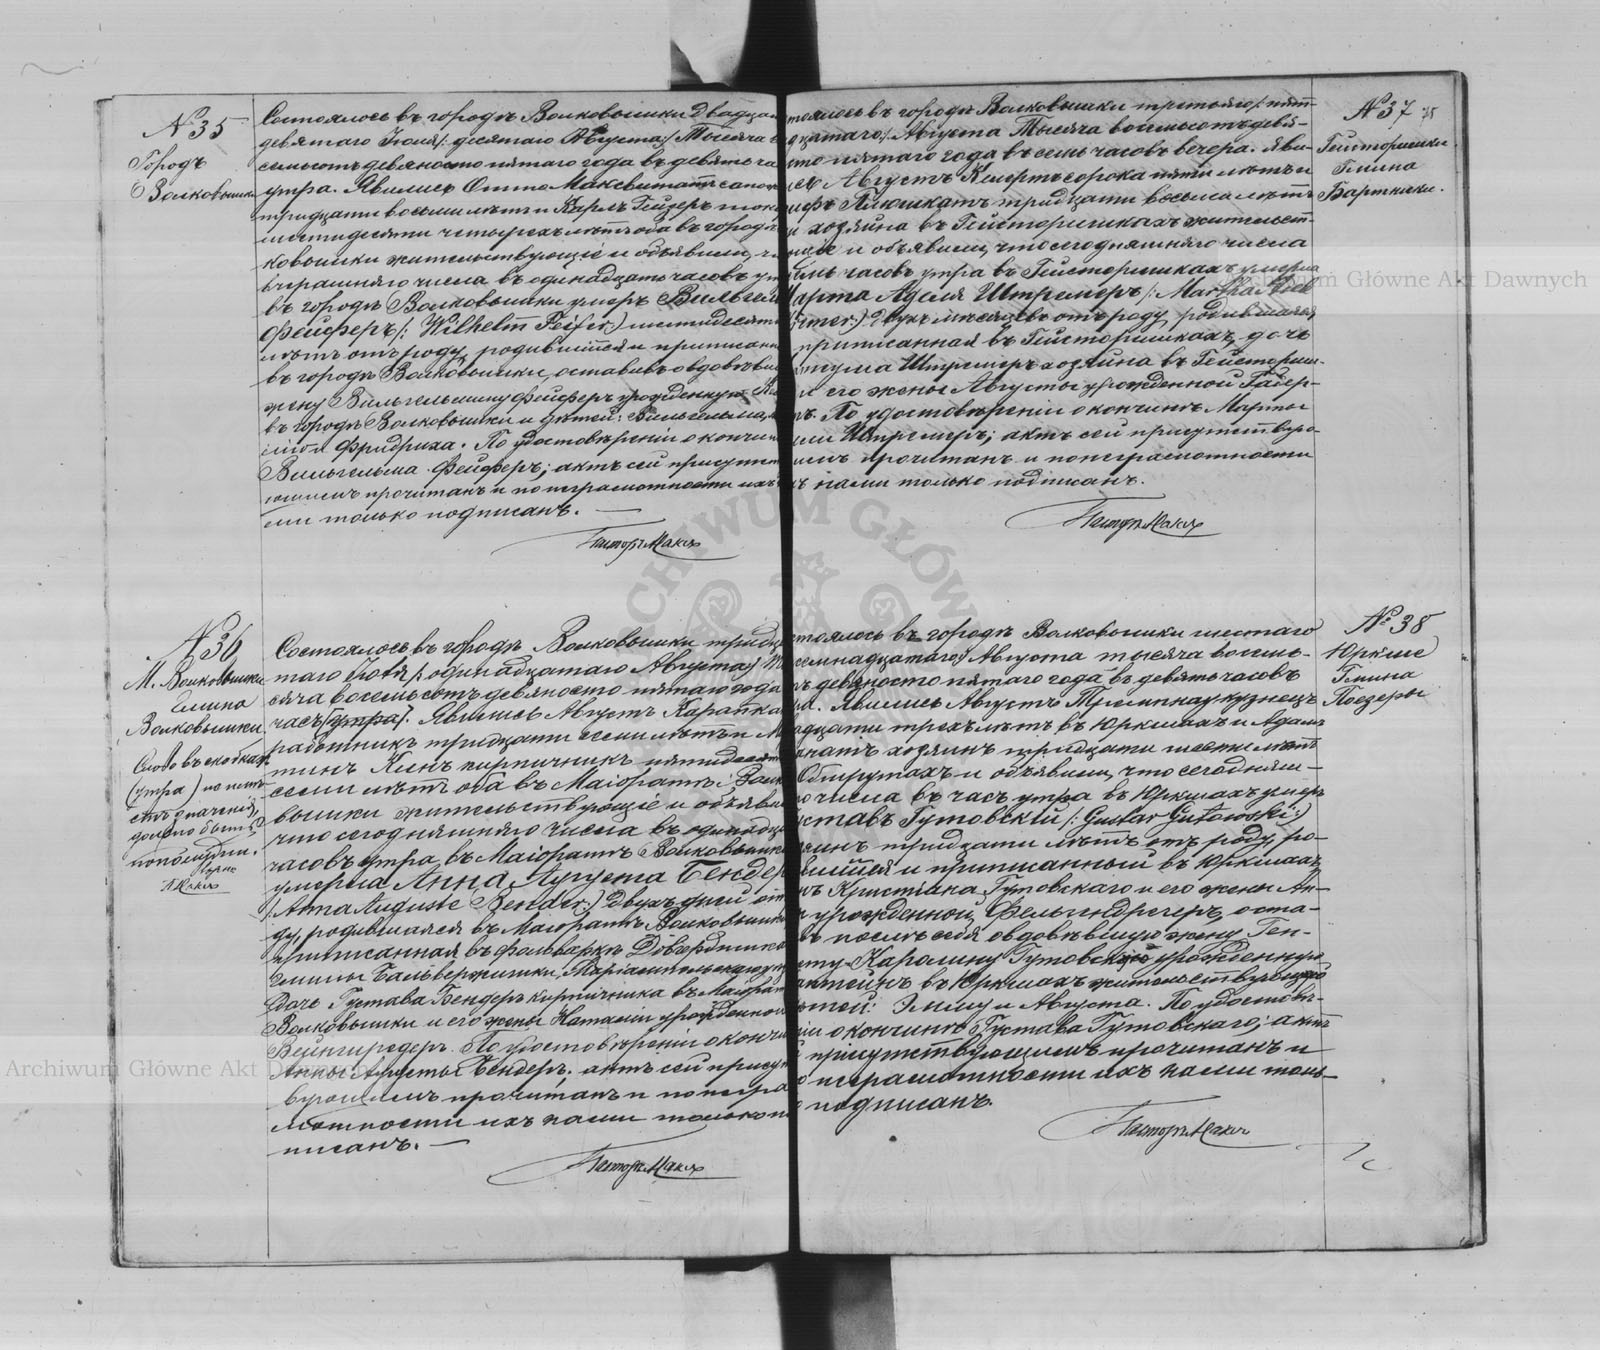 №35
Городъ
Волковышки
Состоялось въ городѣ Волковышки двадцат
девятаго Іюля/: десятаго Августа:/ Тысяча в
семьсотъ девяносто пятаго года въ девять ча
утра. Явились Отто Максвитатъ сапож
тридцати восьми лѣтъ и Карлъ Гейзеръ
шестидесяти четырехъ лѣтъ оба въ городѣ
ковышки жительствующіе и объявили, ч
вчерашняго числа въ одинадцать часовъ ут
въ городѣ Волковышки умеръ Вильгель
Фейферъ /: Wilhelm Peifer:) шестидесяти
лѣтъ отъ роду, родившійся и приписанн
въ городѣ Волковышки, оставивъ овдовѣвш
жену Вильгельмину Фейферъ урожденную
въ городѣ Волковышки и дѣтей: Вильгельма,
Фридриха. По удостовѣреніи о кончин
Вильгельма Фейферъ; актъ сей присутст
ющимъ прочитанъ и по неграмотности ихъ
ми только подписанъ. —
Пасторъ
№36
М. Волковышки
Гмина
Волковышки
Слово въ скобкахъ
(утра) не имѣ
етъ значенія,
должно быть
пополудни.
Состоялось въ городѣ Волковышки тридц
таго Іюля /: одинадцатаго Августа:/ Ты
сяча восемьсотъ девяносто пятаго года
часъ (утра). Явились Августъ
работникъ тридцати семи лѣтъ и М
тинъ Кинъ кирпичникъ пятидесяти
семи лѣтъ оба въ Маіоратѣ Волко
вышки жительствующіе и объяви
что сегодняшняго числа въ одинадца
часовъ утра, въ Маіоратѣ Волковышки
умерла Анна Аугуста Бендер
/: Anna Auguste Bender:) двухъ дней от
ду, родившаяся въ Маіоратѣ Волковышки
приписанная въ фольваркѣ
Гмины Бальвержишки, Маріампольскаго у
дочь Густава Бендеръ кирпичника въ Маіорат
Волковышки и его жены Наталіи урожденной
По удостовѣреніи о кончи
Анны Аугусты Бендеръ; актъ сей присут
вующимъ прочитанъ и по негра
мотности ихъ нами только по
писанъ. —
Пасторъ
№37
Гейсторишки
Гмина
Бартники.
тоялось въ городѣ Волковышки третьяго/: пят
дцатаго:/ Августа Тысяча восемьсотъ девя-
сто пятаго года въ семь часовъ вечера. Яви-
сь Августъ сорока пяти лѣтъ и
тридцати восьми лѣтъ
и хозяина въ Гейсторишкахъ жительст-
ющіе и объявили, что сегодняшняго числа
часовъ утра въ Гейсторишкахъ умерла
Марта Аделя Штремеръ /: Martha Adel
emer:) двухъ мѣсяцевъ отъ роду, родившаяся
приписанная въ Гейсторишкахъ, дочь
Штремеръ хозяина въ Гейстори-
и его жены Августы урожденной
ъ. По удостовѣреніи о кончинѣ Марты
ели Штремеръ; актъ сей присутствую-
имъ прочитанъ и по неграмотности
ъ нами только подписанъ.
Пасторъ
№ 38
Юркше
Гмина
Поезеры
тоялось въ городѣ Волковышки шестаго
семнадцатаго:/ Августа тысяча восемь-
ъ девяносто пятаго года въ девять часовъ
ра. Явились Августъ кузнецъ
дцати трехъ лѣтъ въ Юркшахъ и Адамъ
хозяинъ тридцати шести лѣтъ
и объявили, что сегодняш-
о числа въ часъ утра въ Юркшахъ умеръ
ставъ Гутовскій /: Gustav Gutowski:)
яинъ тридцати лѣтъ отъ роду, ро-
вшійся и приписанный въ Юркшахъ,
нъ Кристіана Гутовскаго и его жены Ан-
урожденной оста-
въ послѣ себя овдовѣвшую жену Ген-
ету Каролину Гутовскую урожденную
въ Юркшахъ жительствующую
ѣтей: Эмму и Августа. По удостовѣ-
іи о кончинѣ Густава Гутовскаго; актъ
присутствующимъ прочитанъ и
неграмотности ихъ нами толь-
подписанъ.
Пасторъ
Archiwum Główne Akt Dawnych
Archiwum Główne Akt D
ARCHIWUM GŁÓW